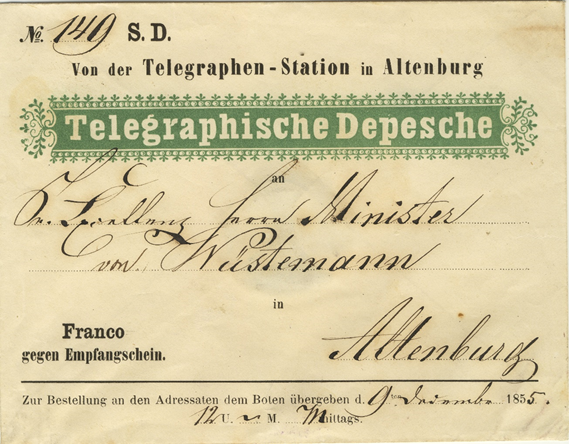 No. 149 S. D.
Von der Telegraphen-Station in Altenburg
Telegraphische Depesche
an
Sr. Excellenz Herrn Minister
von Wüstemann
in
Franco
Altenburg
gegen Empfangschein.
Zur Bestellung an den Adressaten dem Boten übergeben d. 9ten December 1855.
12 U. ~ M. Mittags.